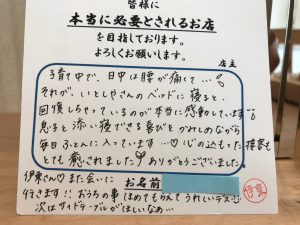 皆様に
本当に必要とされるお店
を目指しております。
よろしくお願いします。
店主
子育て中で、日中は腰が痛くて…
それが、いとしやさんのベッドに寝ると、
回復しちゃっているのが本当に感動しています
息子と添い寝できる喜びをかみしめながら
毎日ふとんに入っています…♡心の込もった接客も
とても癒されました ありがとうございました。
伊東さん♡また会いに
行きます!!おうちの事ほめてもらえてうれしいデス
次はサイドテーブルがほしいなぁ…
お名前
伊東